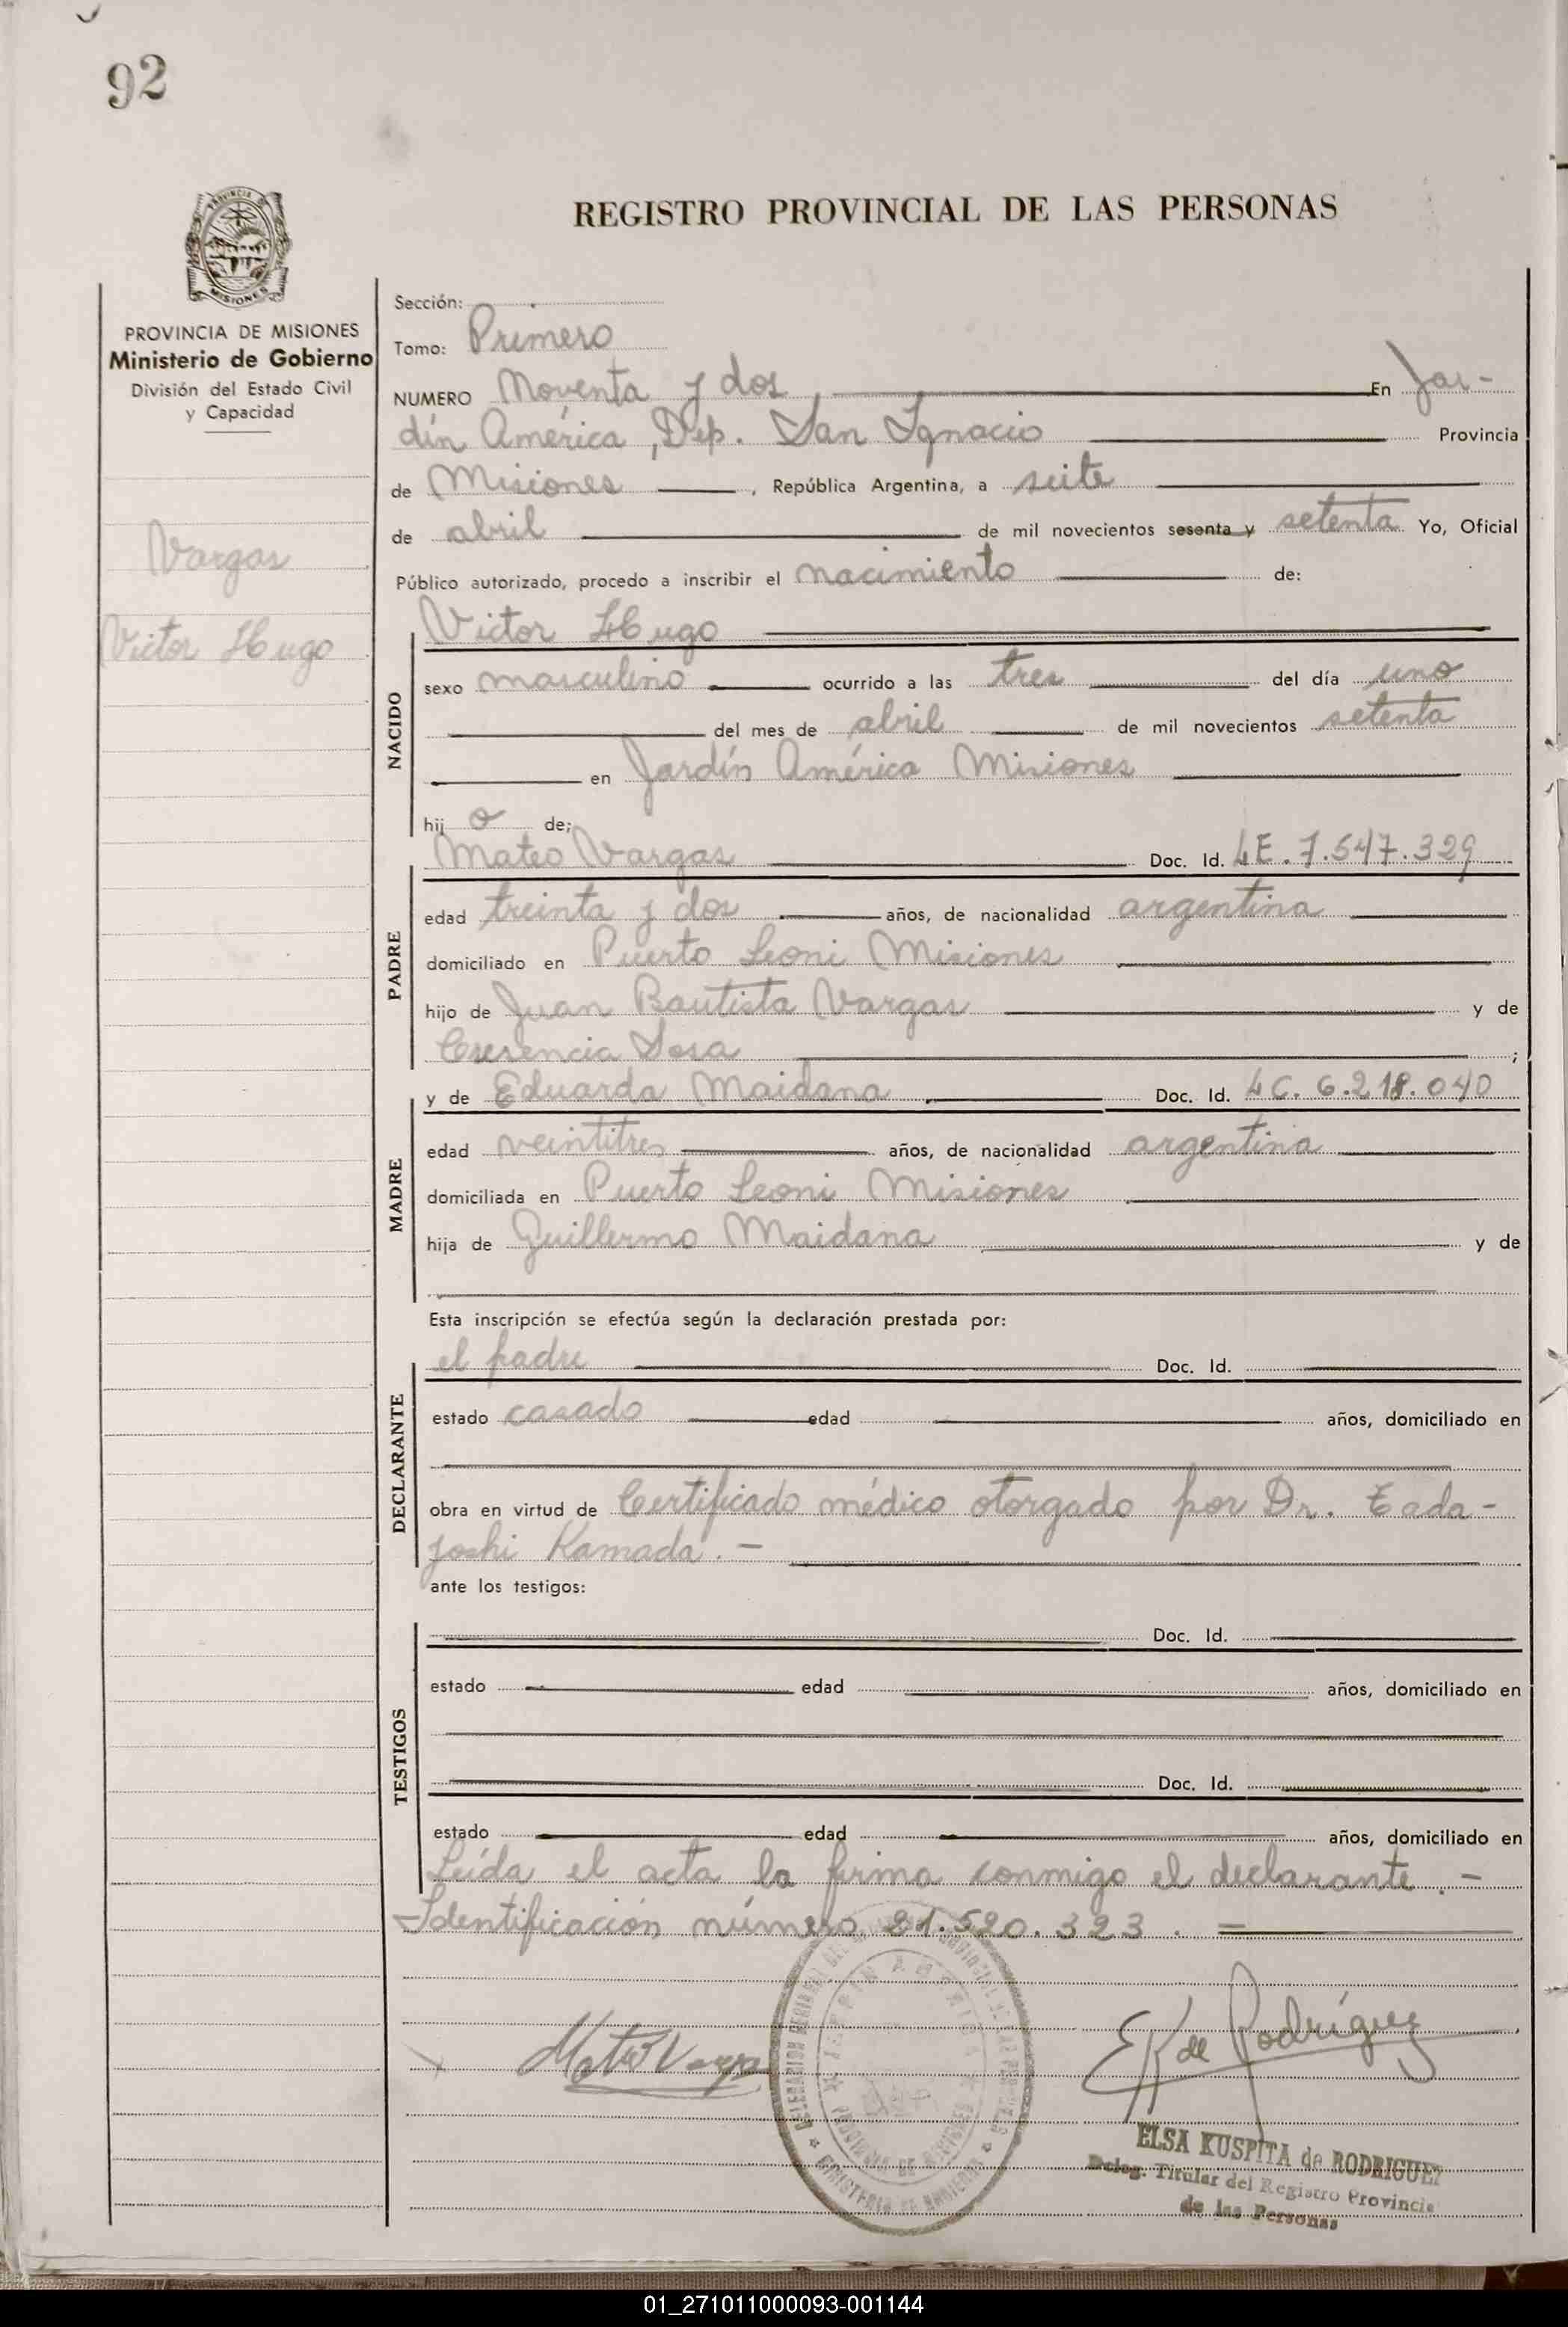 92
REGISTRO PROVINCIAL DE LAS PERSONAS
PROVINCIA DE MISIONES
Ministerio de Gobierno
División del Estado Civil
y Capacidad
Vargas
Victor Hugo
Sección:
Tomo: Primero
NUMERO Noventa y dos En Jar-
dín América, Dep. San Ignacio Provincia
de Misiones, República Argentina, a siete
de abril de mil novecientos sesenta y setenta Yo, Oficial
Público autorizado, procedo a inscribir el nacimiento de:
NACIDO
Victor Hugo
sexo masculino ocurrido a las tres del día uno
del mes de abril de mil novecientos setenta
en Jardín América Misiones
hij o de;
PADRE
Mateo Vargas Doc. Id. LE. 7.547.329
edad treinta y dos años, de nacionalidad argentina
domiciliado en Puerto Leoni Misiones
hijo de Juan Bautista Vargas y de
Sosa ;
MADRE
y de Eduarda Maidana Doc. Id. LC. 6.218.040
edad veintitres años, de nacionalidad argentina
domiciliada en Puerto Leoni Misiones
hija de Guillermo Maidana y de
Esta inscripción se efectúa según la declaración prestada por:
DECLARANTE
el padre Doc. Id.
estado casado edad años, domiciliado en
obra en virtud de Certificado médico otorgado por Dr. Tada-
joshi Kamada. -
ante los testigos:
TESTIGOS
Doc. Id.
estado edad años, domiciliado en
Doc. Id.
estado edad años, domiciliado en
Leída el acta la firma conmigo el declarante. -
Identificación número 21.520.323. =
Mateo Vargas
E K de Rodríguez
JARDIN AMERICA
PROVINCIA DE MISIONES
ELSA KUSPITA de RODRIGUEZ
Deleg. Titular del Registro Provincia
de las Personas
01_271011000093-001144